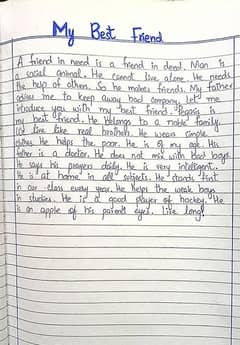 My Best Friend
A friend in need is a friend in deed. Man is
a social animal. He cannot live alone. He needs
the help of others. So he makes friends. My father
advises me to keep away bad company. Let me
introduce you with my best friend. is
my best friend. He belongs to a noble family.
We live like real brothers. He wears simple
clothes. He helps the poor. He is of my age. His
father is a doctor. He does not mix with bad boys.
He says his prayers daily. He is very intelligent.
He is at home in all subjects. He stands first
in our class every year. He helps the weak boys
in studies. He is a good player of hockey. He
is an apple of his parents eyes. Live long!